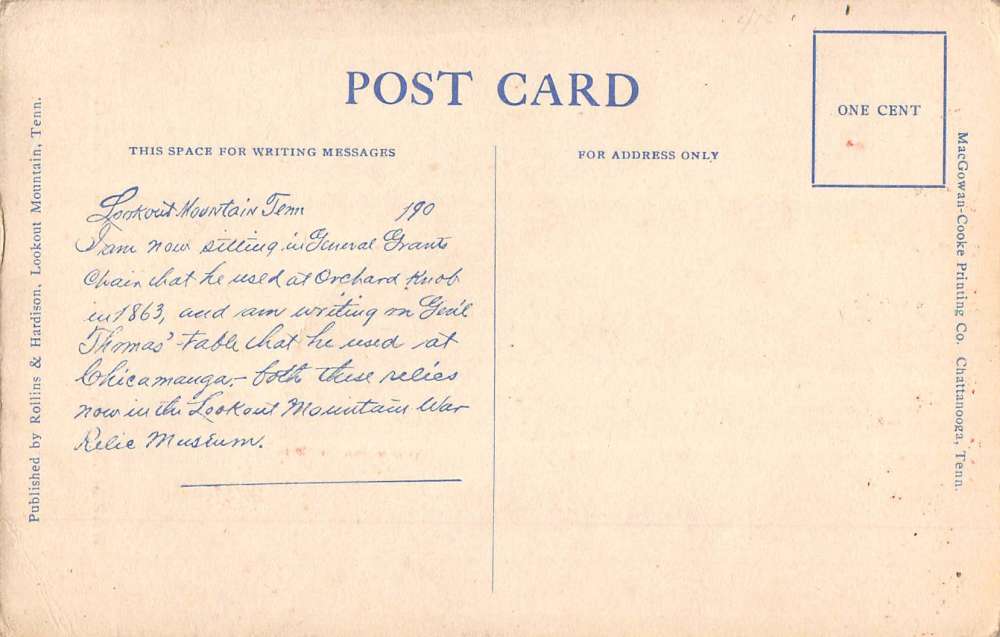 POST CARD
ONE CENT
THIS SPACE FOR WRITING MESSAGES
FOR ADDRESS ONLY
Lookout Mountain Tenn 190
I am now sitting in General Grants
Chair that he used at Orchard Knob
in 1863, and am writing on Gen'l
Thomas' table that he used at
Chicamauga,- both these relics
now in the Lookout Mountain War
Relic Museum.
Published by Rollins & Hardison, Lookout Mountain, Tenn.
MacGowan-Cooke Printing Co. Chattanooga, Tenn.